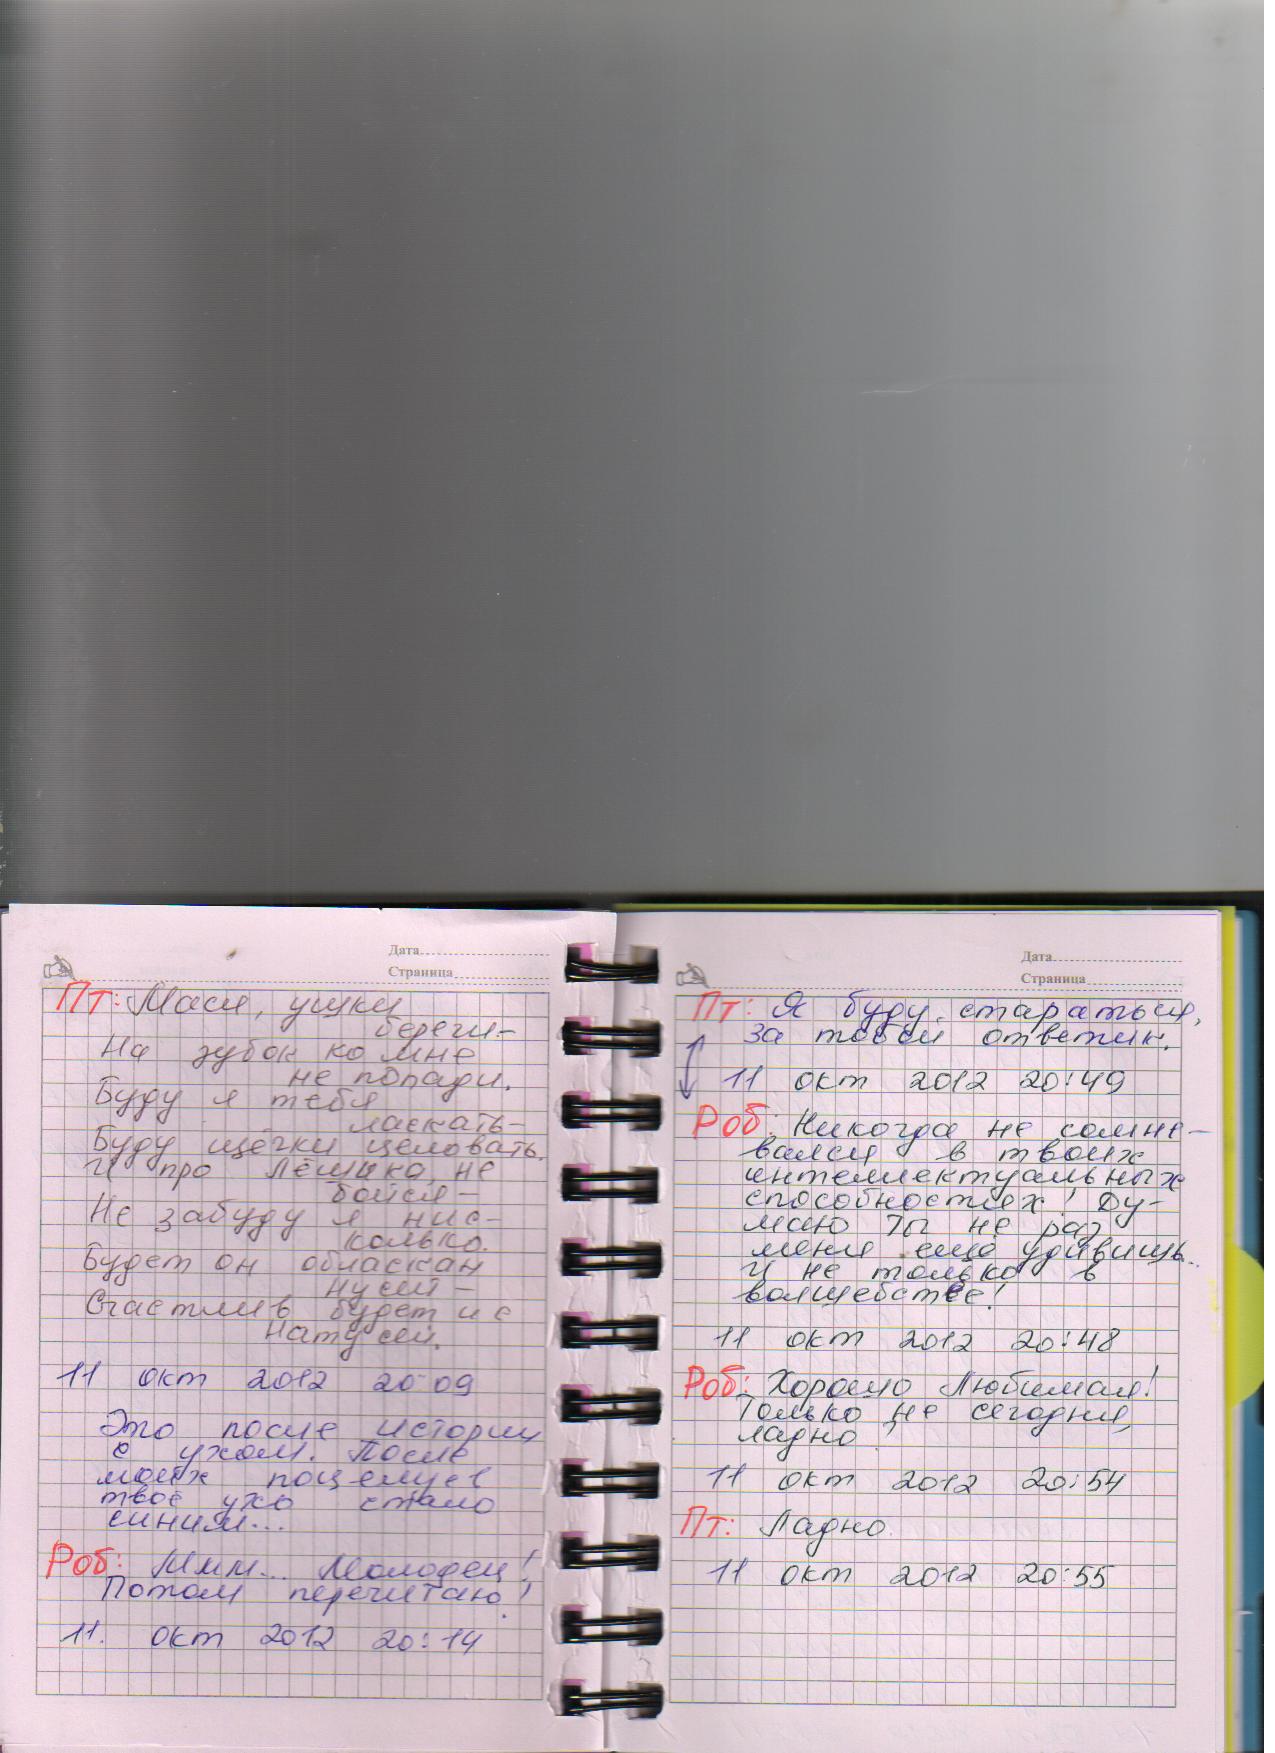 Дата
Страница
Пт: Мася, ушки
береги-
На зубок ко мне
не попади.
Буду я тебя
ласкать-
Буду щёчки целовать.
И про Лёшика не
бойся-
Не забуду я нис-
колько.
Будет он обласкан
Нусей-
Счастлив будет и с
Натусей.
11 окт 2012 20:09
Это после истории
с ухом. После
моих поцелуев
твоё ухо стало
синим...
Роб: Ммм... Молодец!
Потом перечитаю!
11. окт 2012 20:14
Дата
Страница
Пт: Я буду стараться,
за тобой ответик.
11 окт 2012 20:49
Роб: Никогда не сомне-
вался в твоих
интеллектуальных
способностях! Ду-
маю ты не раз
меня ещё удивишь..
И не только в
волшебстве!
11 окт 2012 20:48
Роб: Хорошо Любимая!
Только не сегодня,
ладно
11 окт 2012 20:54
Пт: Ладно.
11 окт 2012 20:55